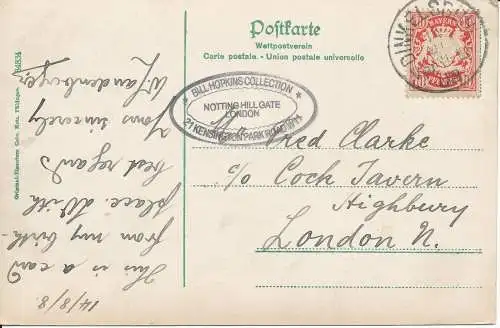 Postkarte
Weltpostverein
Carte postale. - Union postale universelle
BAYERN
DINKELSBÜHL
BILL HOPKINS COLLECTION
NOTTING HILL GATE
LONDON
21 KENSINGTON PARK ROAD W11
Fred Clarke
c/o Cock Tavern
Highbury
London N.
14/8/8
This is a card
from my birth-
place. With
best regards
Yours sincerely